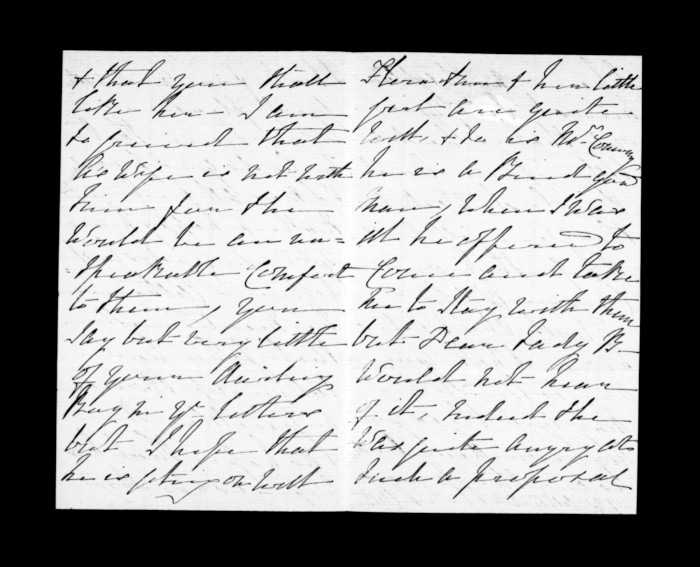 & that you shall
like her - I am
so grieved that
his wife is not with
him for she
would be an un=
=speakable comfort
to them, you
say but very little
of your darling
Boy in yr letters
but I hope that
he is going on well
Flora & her little
first are quite
well, & so is Mr
he is a kind good
man, when I was
ill he offered to
come and take
me to stay with them
but Dear Lady B-
would not hear
of it, indeed she
was quite angry at
such a proposal